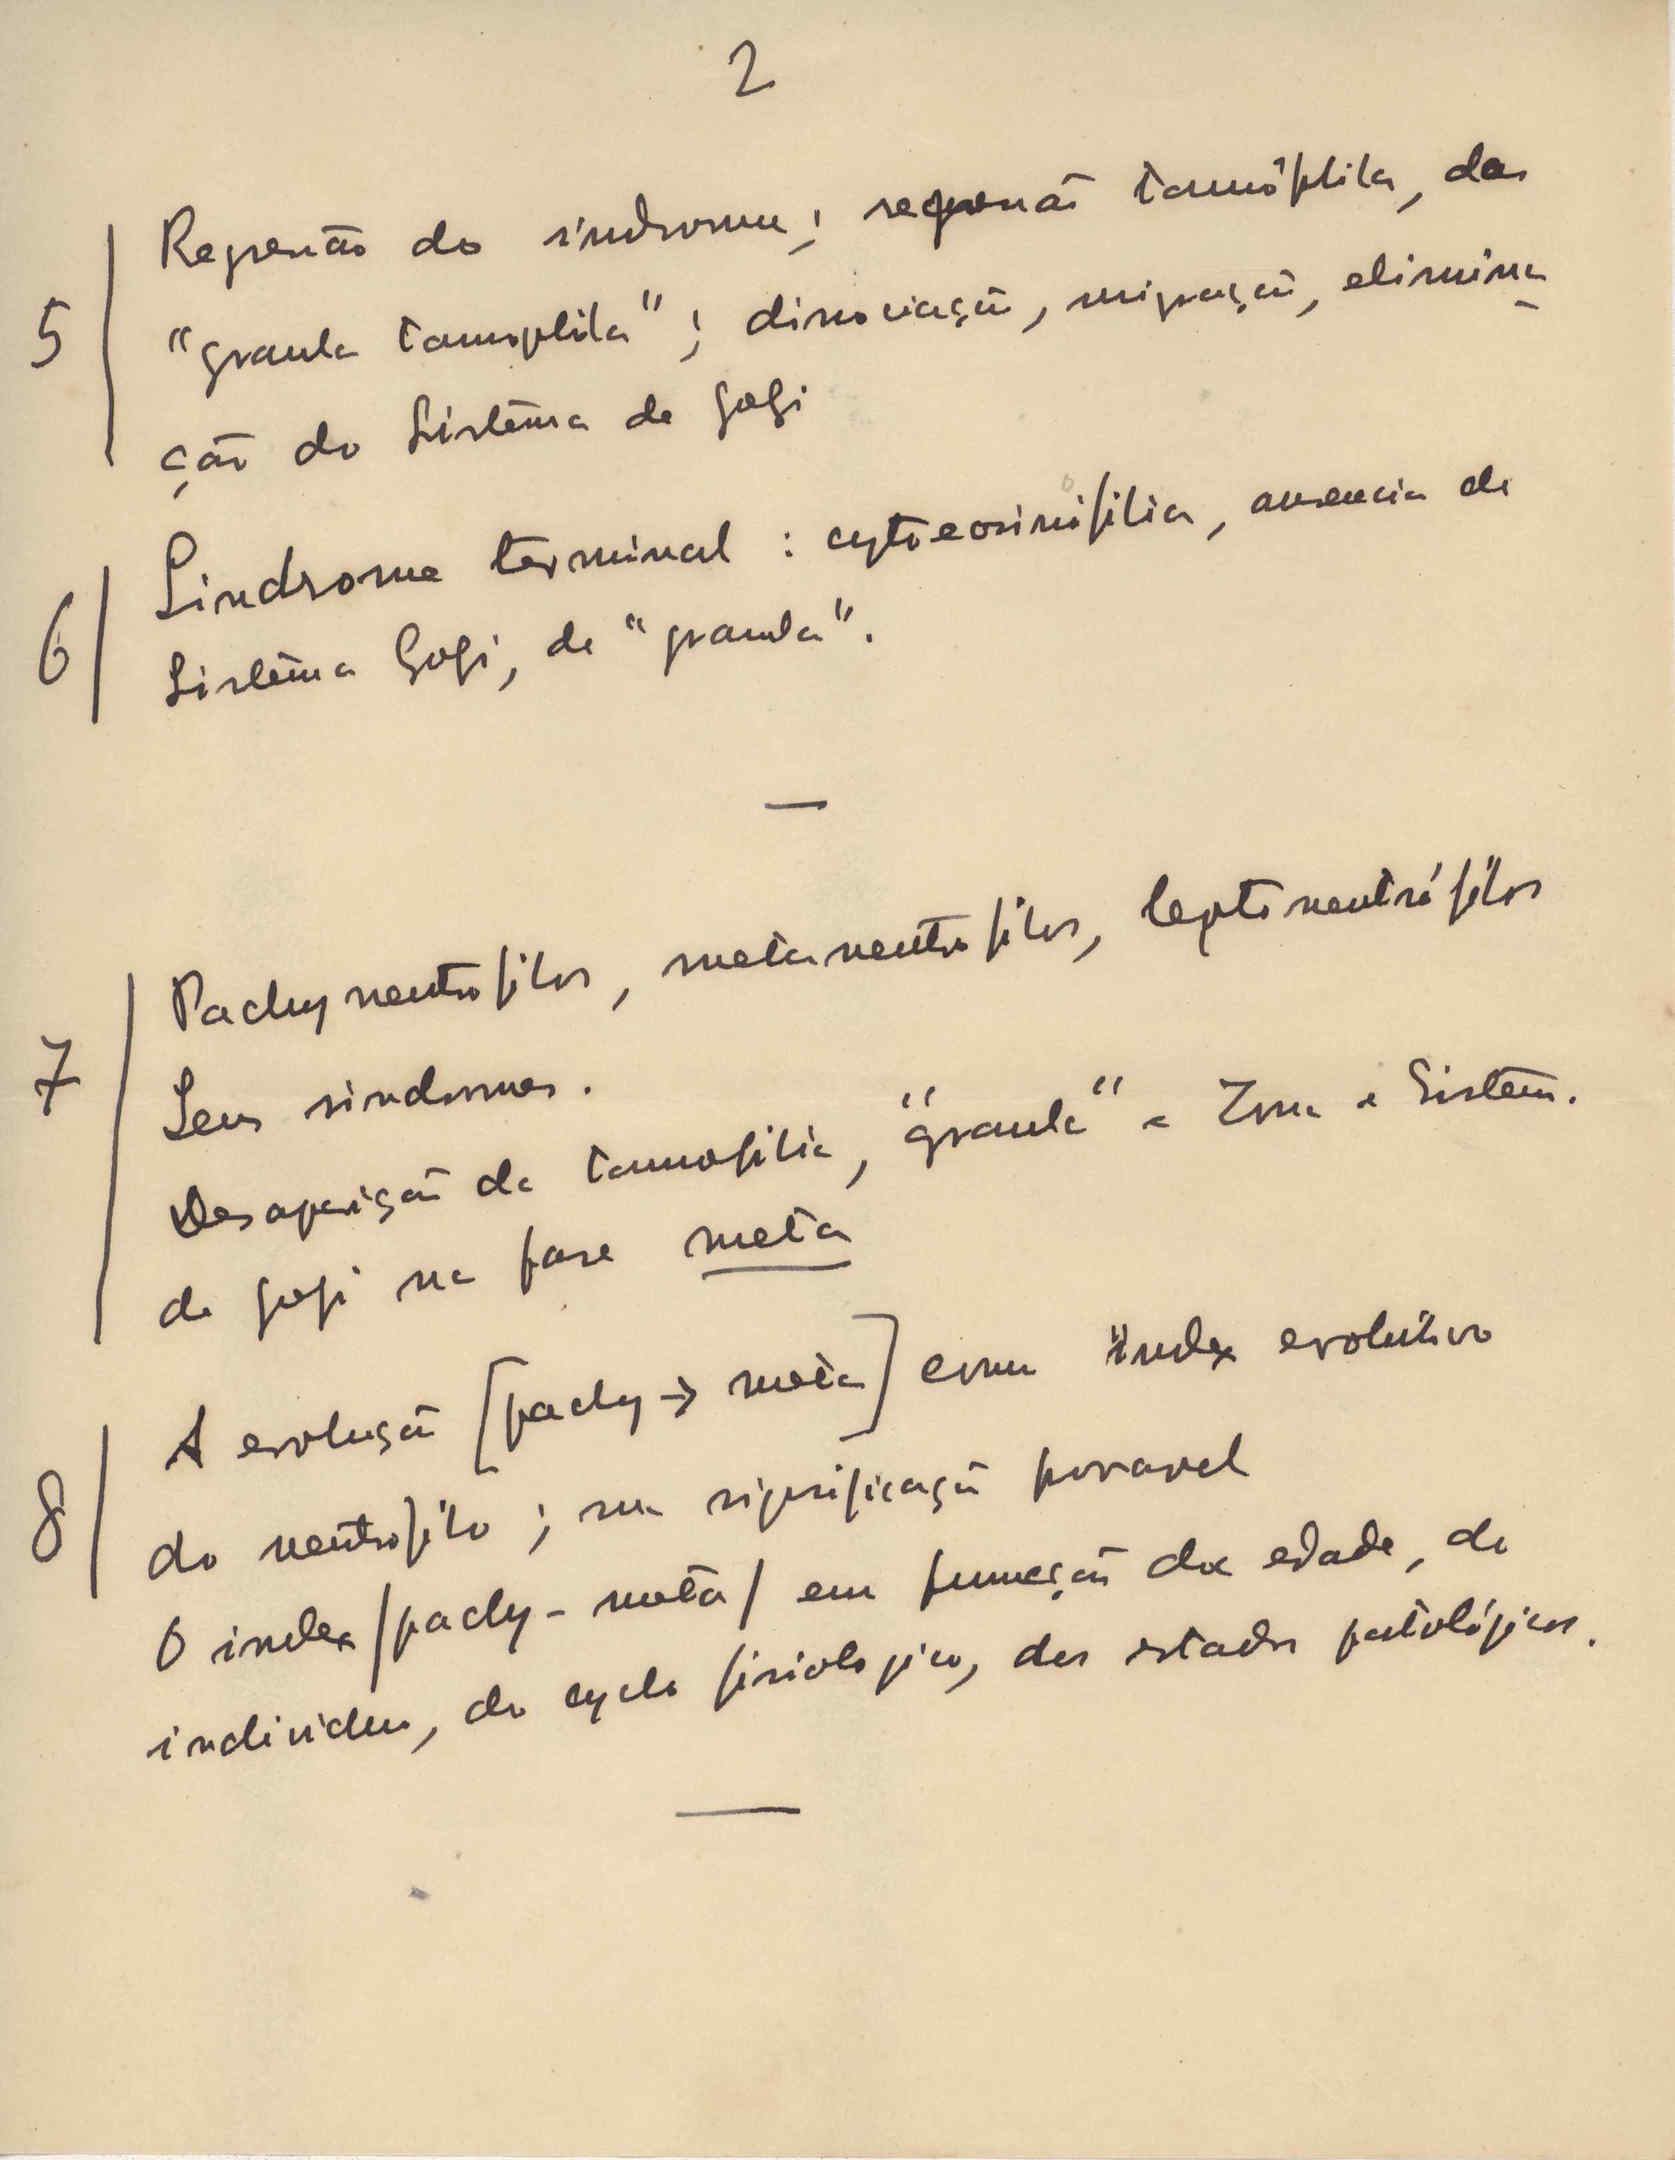 2
5 Regressão do sindrome; regressão tannóphila, das
"granula tannophila"; dissociação, migração, elimina-
ção do Sistêma de Golgi
6 Sindrome terminal : cytoeosinófilia, ausencia de
Sistêma Golgi, de "granula".
—
7 Pachyneutrofilos, metaneutrofilos, leptoneutrófilos
Seus sindromes.
Desaparição da tannofilia, "granula" e Zona e Sistêm.
de Golgi na fase meta
8 A evolução [pachy → meta] como index evolutivo
do neutrofilo ; sua significação provavel
O index /pachy - meta/ em funcção da edade, do
individuo, do cyclo fisiologico, dos estados patológicos.
—